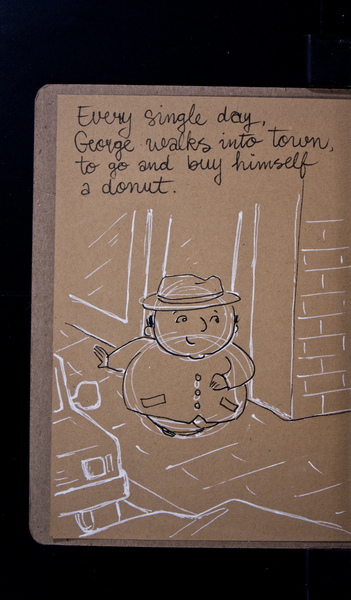 Every single day,
George walks into town,
to go and buy himself
a donut.